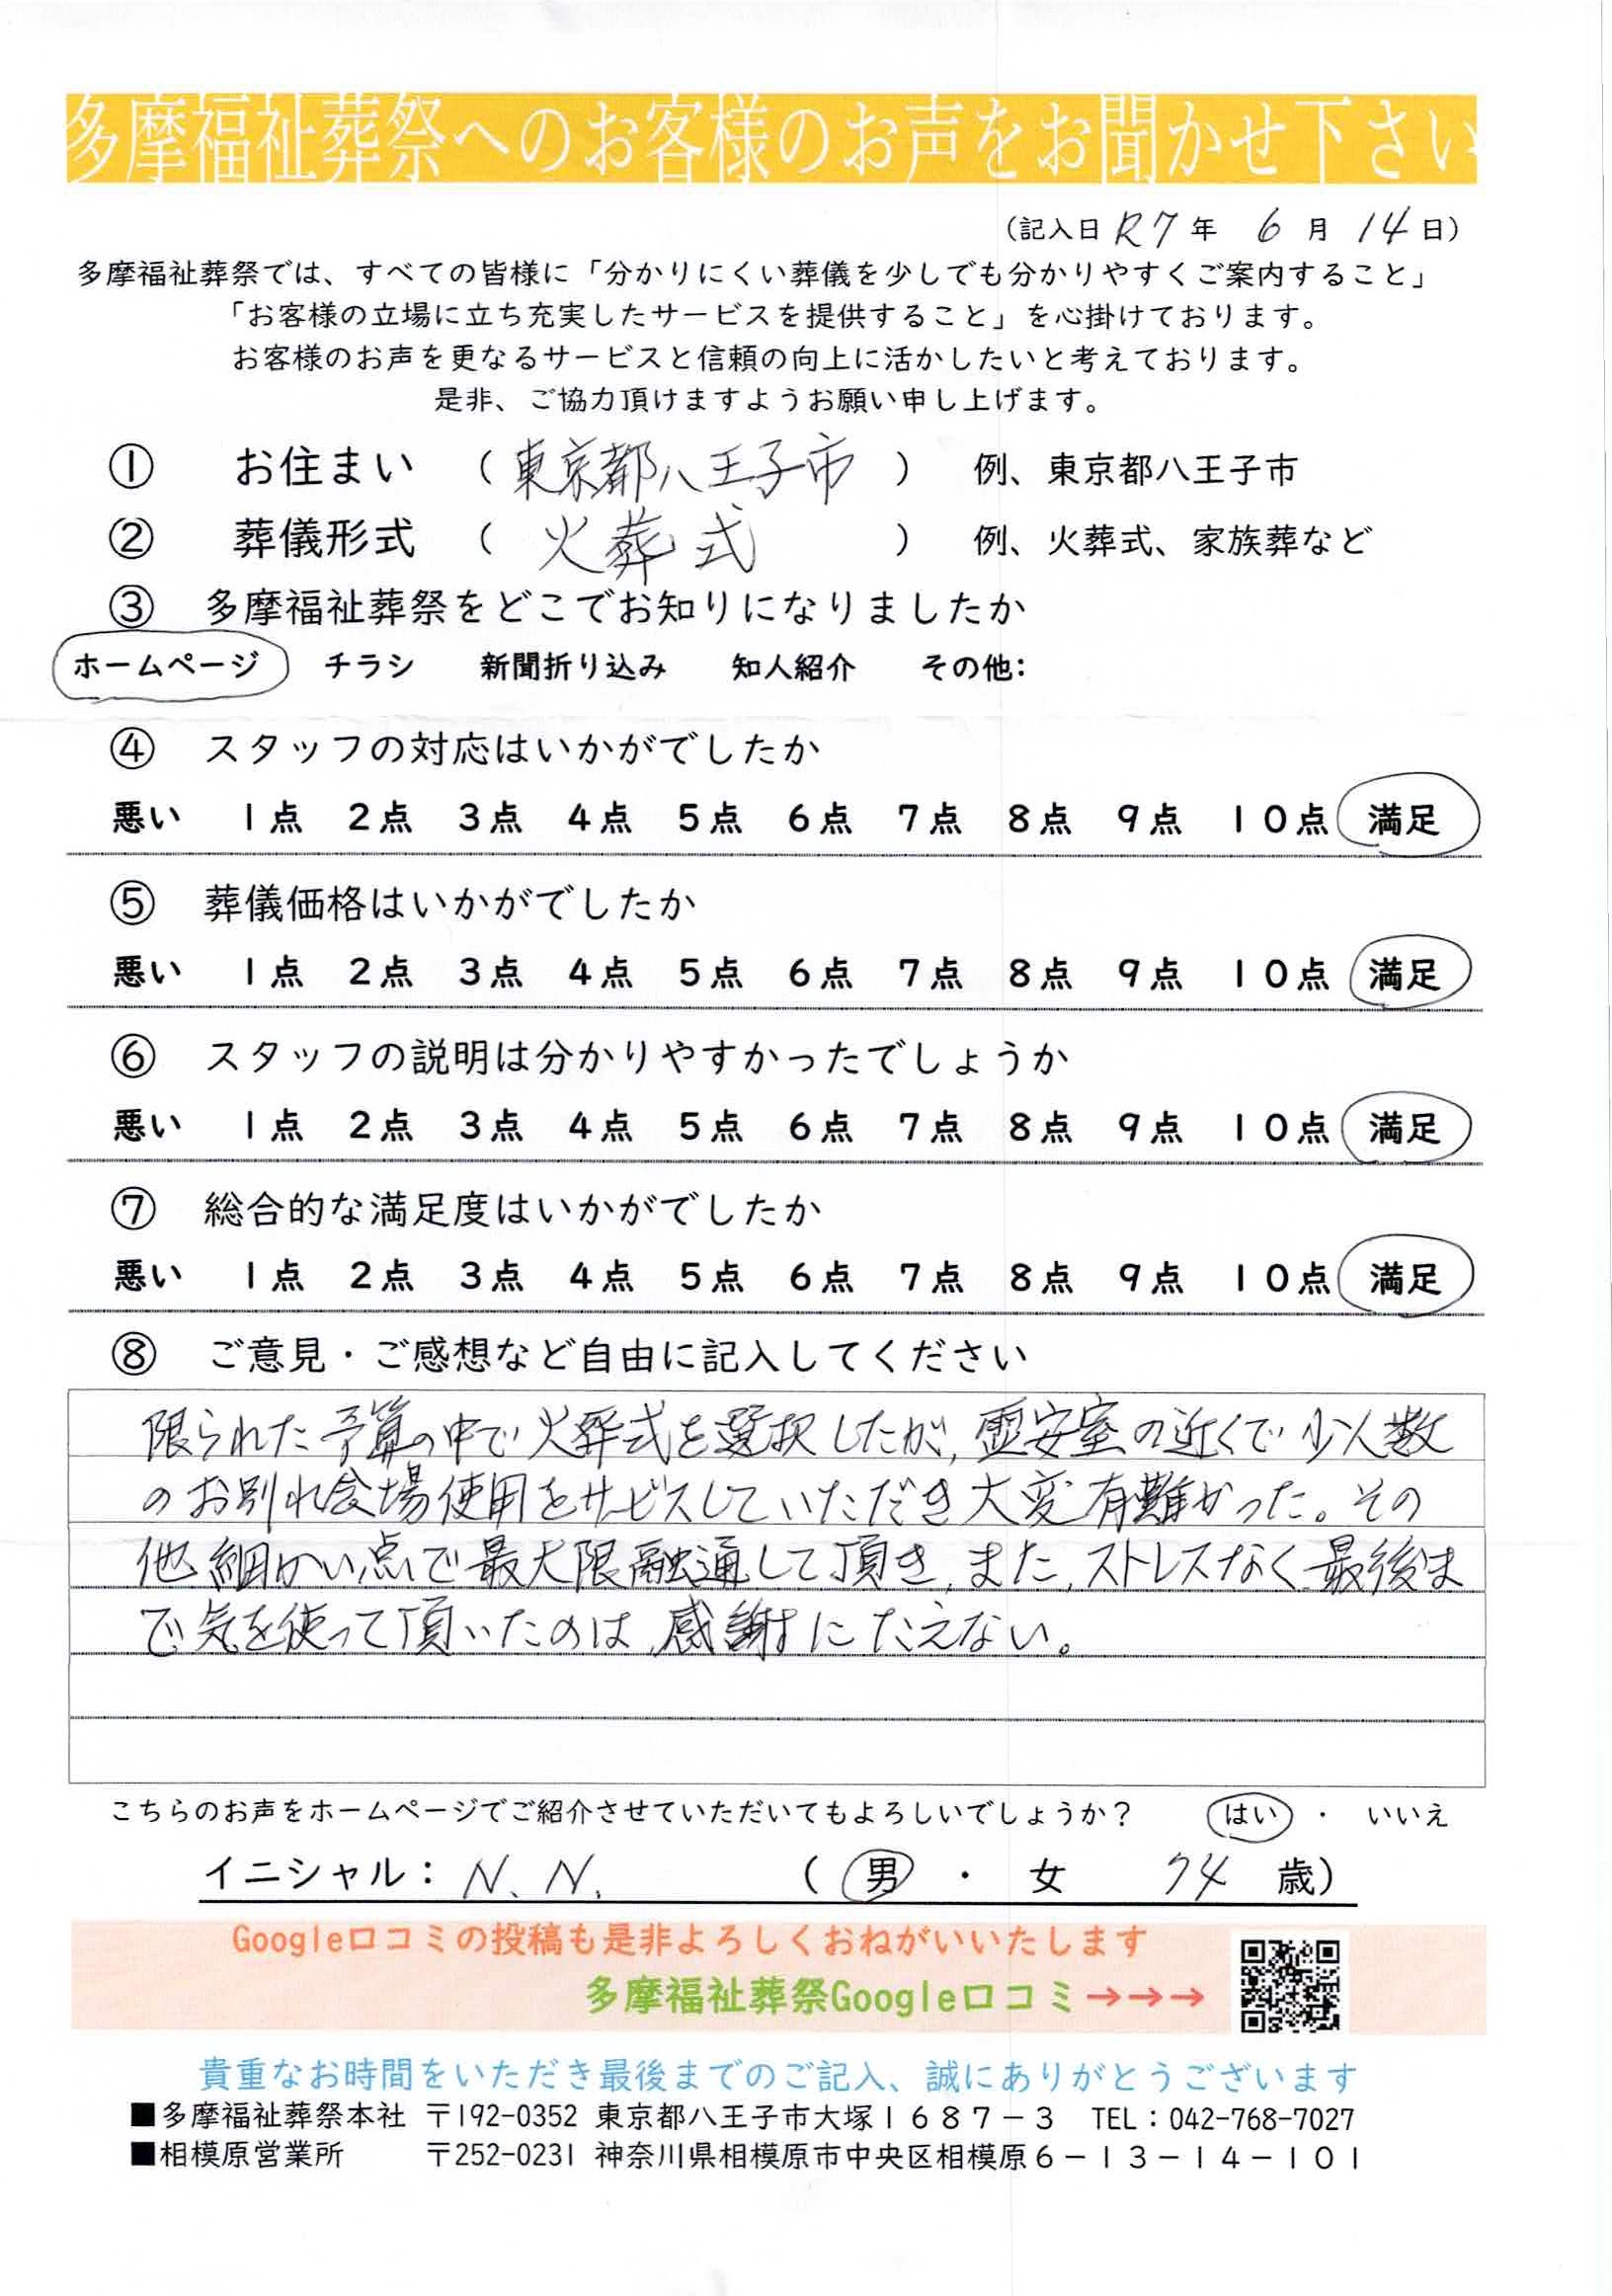 多摩福祉葬祭へのお客様のお声をお聞かせ下さい
(記入日 R7年 6月 14日)
多摩福祉葬祭では、すべての皆様に「分かりにくい葬儀を少しでも分かりやすくご案内すること」
「お客様の立場に立ち充実したサービスを提供すること」を心掛けております。
お客様のお声を更なるサービスと信頼の向上に活かしたいと考えております。
是非、ご協力頂けますようお願い申し上げます。
① お住まい (東京都八王子市) 例、東京都八王子市
② 葬儀形式 (火葬式) 例、火葬式、家族葬など
③ 多摩福祉葬祭をどこでお知りになりましたか
ホームページ チラシ 新聞折り込み 知人紹介 その他:
④ スタッフの対応はいかがでしたか
悪い 1点 2点 3点 4点 5点 6点 7点 8点 9点 10点 満足
⑤ 葬儀価格はいかがでしたか
悪い 1点 2点 3点 4点 5点 6点 7点 8点 9点 10点 満足
⑥ スタッフの説明は分かりやすかったでしょうか
悪い 1点 2点 3点 4点 5点 6点 7点 8点 9点 10点 満足
⑦ 総合的な満足度はいかがでしたか
悪い 1点 2点 3点 4点 5点 6点 7点 8点 9点 10点 満足
⑧ ご意見・ご感想など自由に記入してください
限られた予算の中で火葬式を選択したが、霊安室の近くで少人数
のお別れ会場使用をサービスしていただき大変有難かった。その
他細かい点で最大限融通して頂き、また、ストレスなく最後ま
で気を使って頂いたのは、感謝にたえない。
こちらのお声をホームページでご紹介させていただいてもよろしいでしょうか? はい ・ いいえ
イニシャル: N.N. (男 ・ 女 74歳)
Google口コミの投稿も是非よろしくおねがいいたします
多摩福祉葬祭Google口コミ→→→
貴重なお時間をいただき最後までのご記入、誠にありがとうございます
■多摩福祉葬祭本社 〒192-0352 東京都八王子市大塚1687-3 TEL:042-768-7027
■相模原営業所 〒252-0231 神奈川県相模原市中央区相模原6-13-14-101